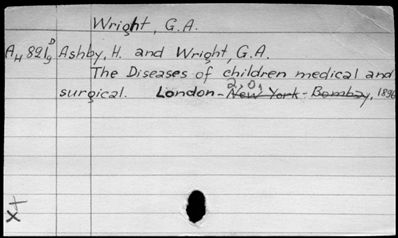 Wright, G.A.
AH 821g D Ashby, H. and Wright, G.A.
The Diseases of children medical and
surgical. London - New York - Bombay,